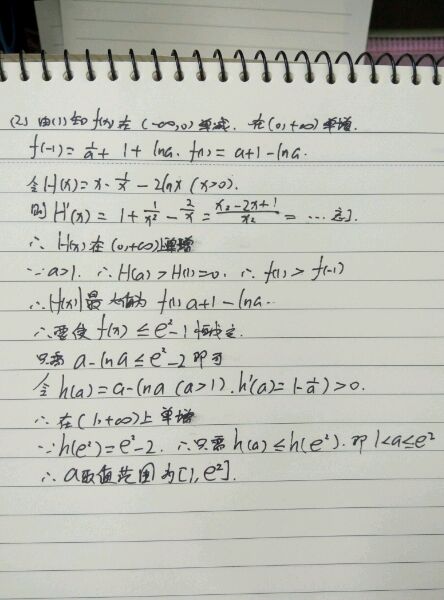 (2) 由(1)知f(x)在(-∞,0)单减. 在(0,+∞)单增.
f(-1)=1/a+1+lna. f(1)=a+1-lna.
令H(x)=x-1/x-2lnx(x>0).
则H'(x)=1+1/x²-2/x=x²-2x+1/x²=…
∴H(x)在(0,+∞)单增
∵a>1. ∴H(a)>H(1)=0. ∴f(1)>f(-1)
∴|f(x)|最大值为f(1) a+1-lna..
∴要使f(x)≤e²-1恒成立.
只需a-lna≤e²-2即可
令h(a)=a-lna(a>1).h'(a)=1-1/a)>0.
∴在(1,+∞)上单增
∵h(e²)=e²-2. ∴只需h(a)≤h(e²).即1<a≤e²
∴a取值范围为[1,e²].